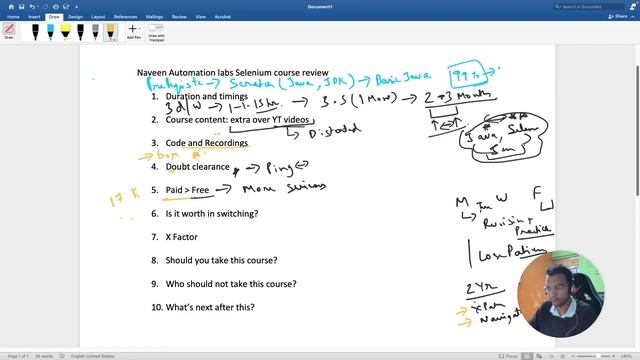 Document1
Home Insert Draw Design Layout References Mailings Review View Acrobat
Share
Draw
Add Pen
Draw with Trackpad
Scratch (Java, JDK) → Basic Java
99%
Naveen Automation labs Selenium course review
1. Duration and timings
3 d/W → 1-1.15 hr → 3.5 (1 More) → 2 → 3 Month
2. Course content: extra over YT videos
3. Code and Recordings
→ box
Java, Selen
4. Doubt clearance → Ping
17 K
5. Paid > Free → More serious
6. Is it worth in switching?
7. X Factor
8. Should you take this course?
9. Who should not take this course?
10. What's next after this?
M W F
Revision +
Practice
2 Yr
→ XPath
→ Navigat
Page 1 of 1
English (United States)
Focus
240%